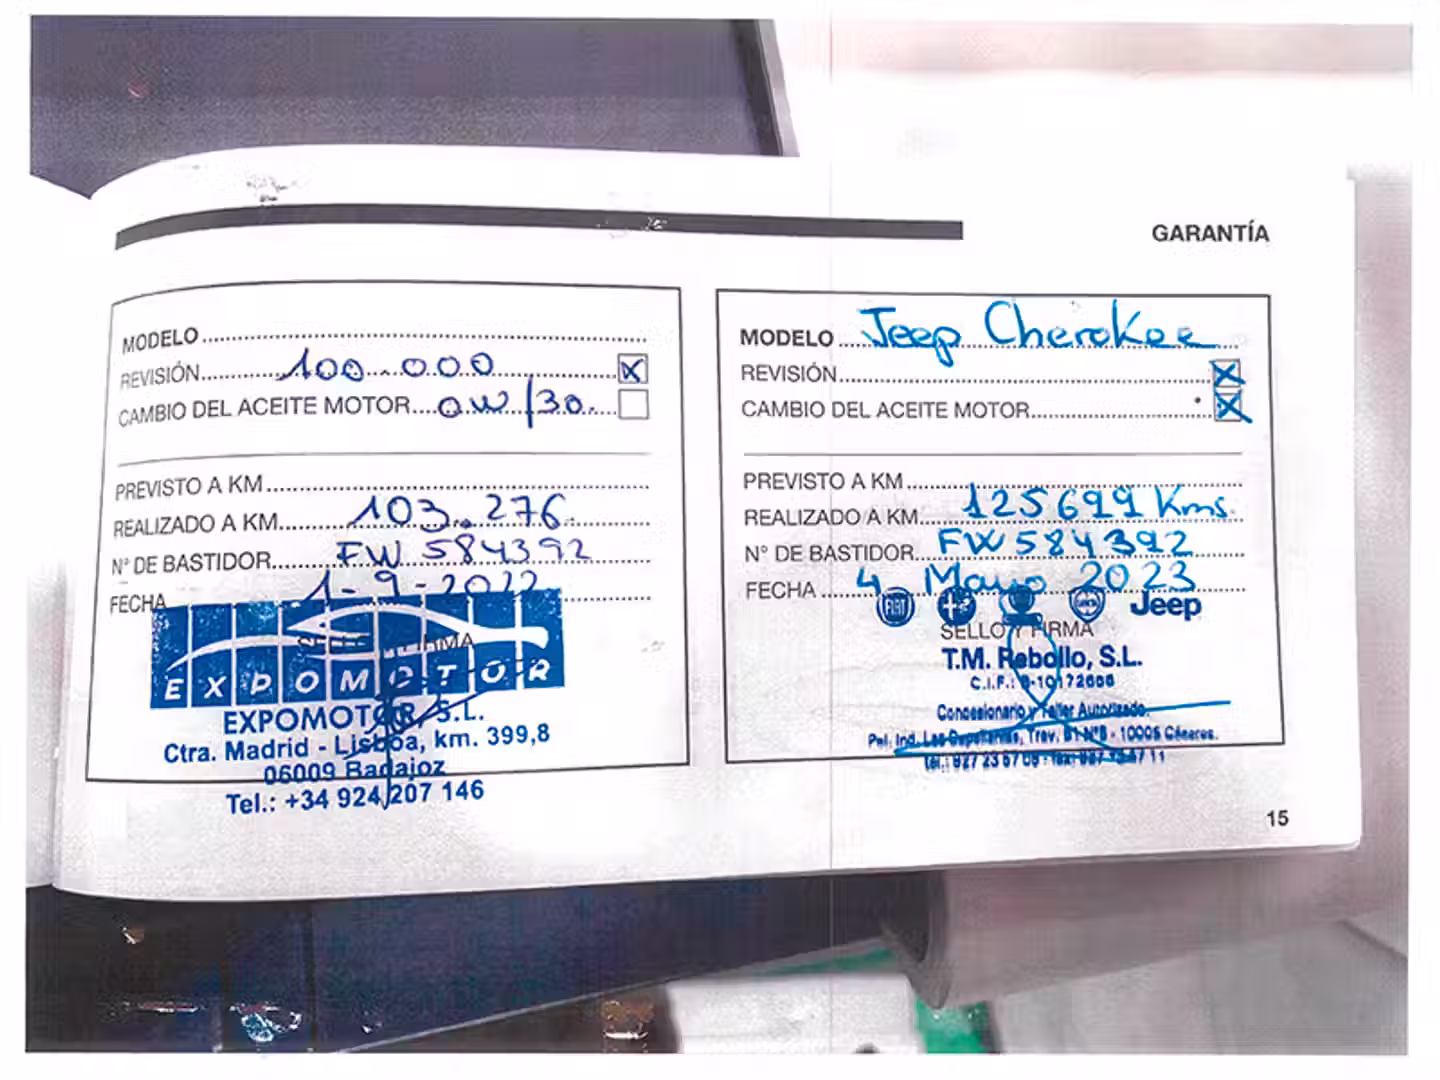 GARANTÍA
MODELO
REVISIÓN 100.000 X
CAMBIO DEL ACEITE MOTOR 0W/30.
PREVISTO A KM
REALIZADO A KM 103.276
N° DE BASTIDOR FW 584392
FECHA 1-9-2022
SELLO Y FIRMA
EXPOMOTOR
EXPOMOTOR, S.L.
Ctra. Madrid - Lisboa, km. 399,8
06009 Badajoz
Tel.: +34 924 207 146
MODELO Jeep Cherokee
REVISIÓN X
CAMBIO DEL ACEITE MOTOR X
PREVISTO A KM
REALIZADO A KM 125699 Kms.
N° DE BASTIDOR FW584392
FECHA 4 Mayo 2023
FIAT Jeep
SELLO Y FIRMA
T.M. Rebollo, S.L.
C.I.F.: B-10172606
Concesionario y Taller Autorizado
Pol. Ind. Las Capellanías, Trav. Nº8 - 10005 Cáceres.
15